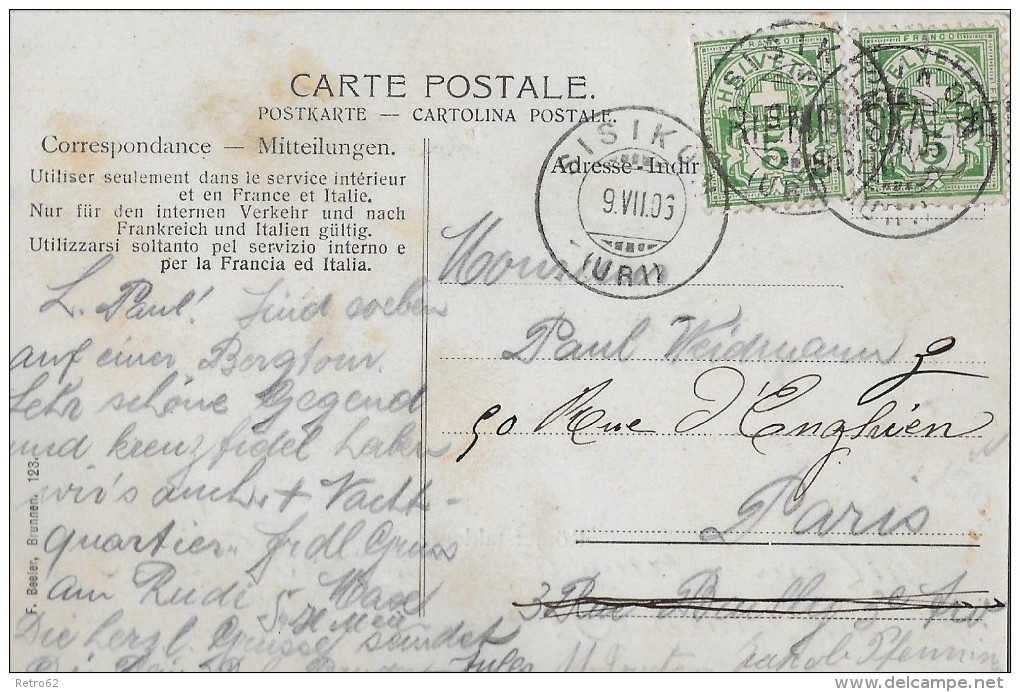 CARTE POSTALE.
POSTKARTE — CARTOLINA POSTALE.
Correspondance — Mitteilungen.
Utiliser seulement dans le service intérieur
et en France et Italie.
Nur für den internen Verkehr und nach
Frankreich und Italien gültig.
Utilizzarsi soltanto pel servizio interno e
per la Francia ed Italia.
L. Paul! Sind soeben
auf einer Bergtour.
Sehr schöne Gegend
und kreuzfidel haben
wir's auch + Nacht-
quartier. frdl Gruss
am Rudi
Die herzl. Grüsse sendet
Jules
Jakob Pfenning
F. Beeler, Brunnen. 123.
Adresse-Indir
SISIKON
9.VII.06
(URI)
FRANCO
HELVETIA
5
FRANCO
HELVETIA
5
Monsieur
Paul Weidmann
50 Rue d'Enghien
Paris
3 Rue Bailly 3e
Retro62
delcampe.net